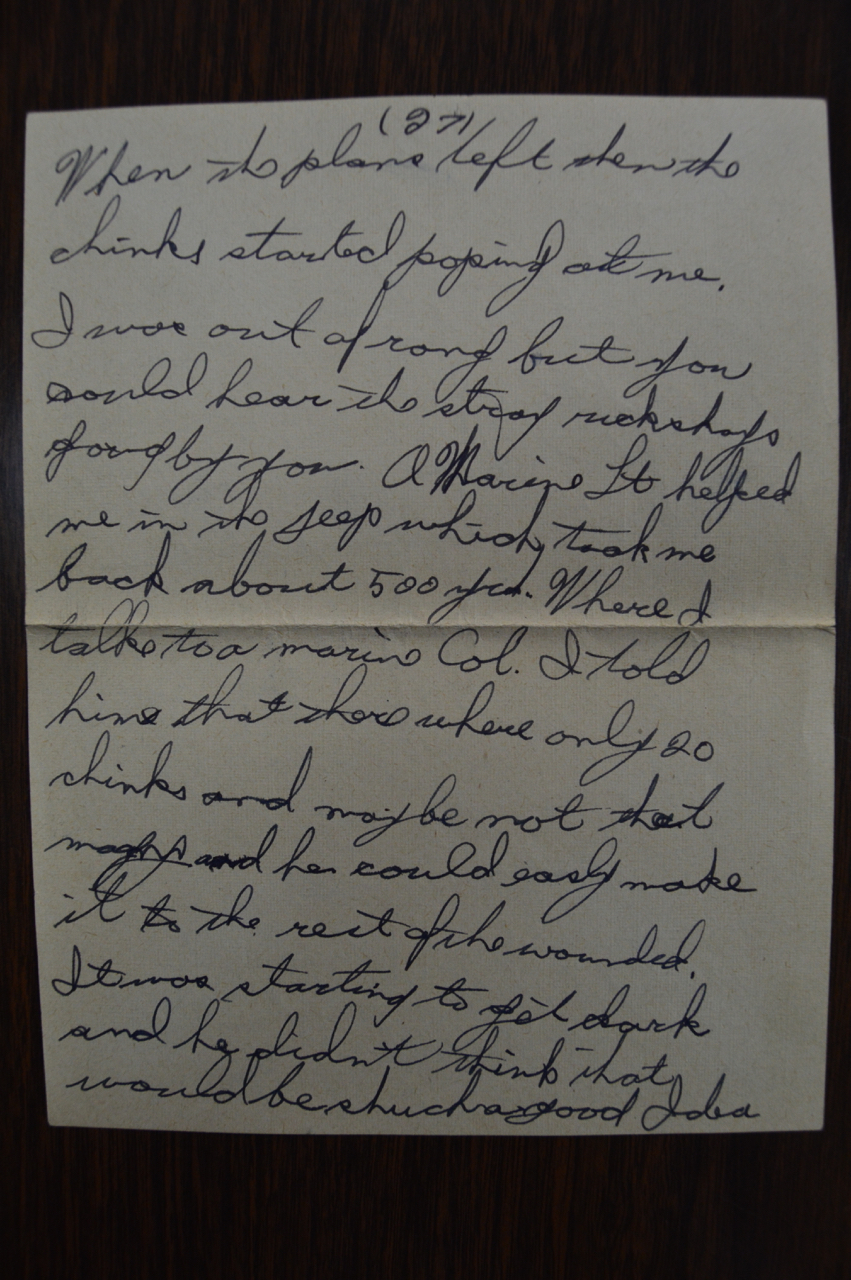 (27)
When the plane left then the
chinks started poping at me.
I was out of rang but you
could hear the stray rickshays
going by you. A Marine Lt helped
me in the jeep which took me
back about 500 yd. Where I
talke to a marine Col. I told
hime that there where only 20
chinks and maybe not that
many and he could easly make
it to the rest of the wounded.
It was starting to get dark
and he didn't think that
would be shuch a good Idea